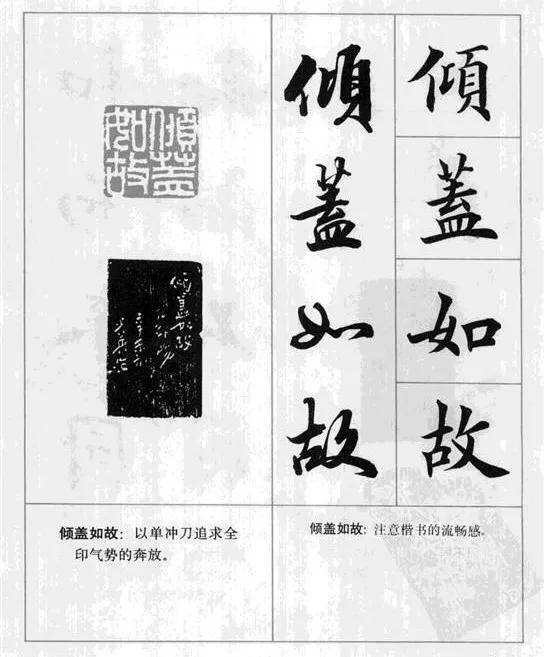 傾蓋如故
傾蓋如故
傾蓋如故
傾蓋如故
倾盖如故：以单冲刀追求全
印气势的奔放。
倾盖如故：注意楷书的流畅感。